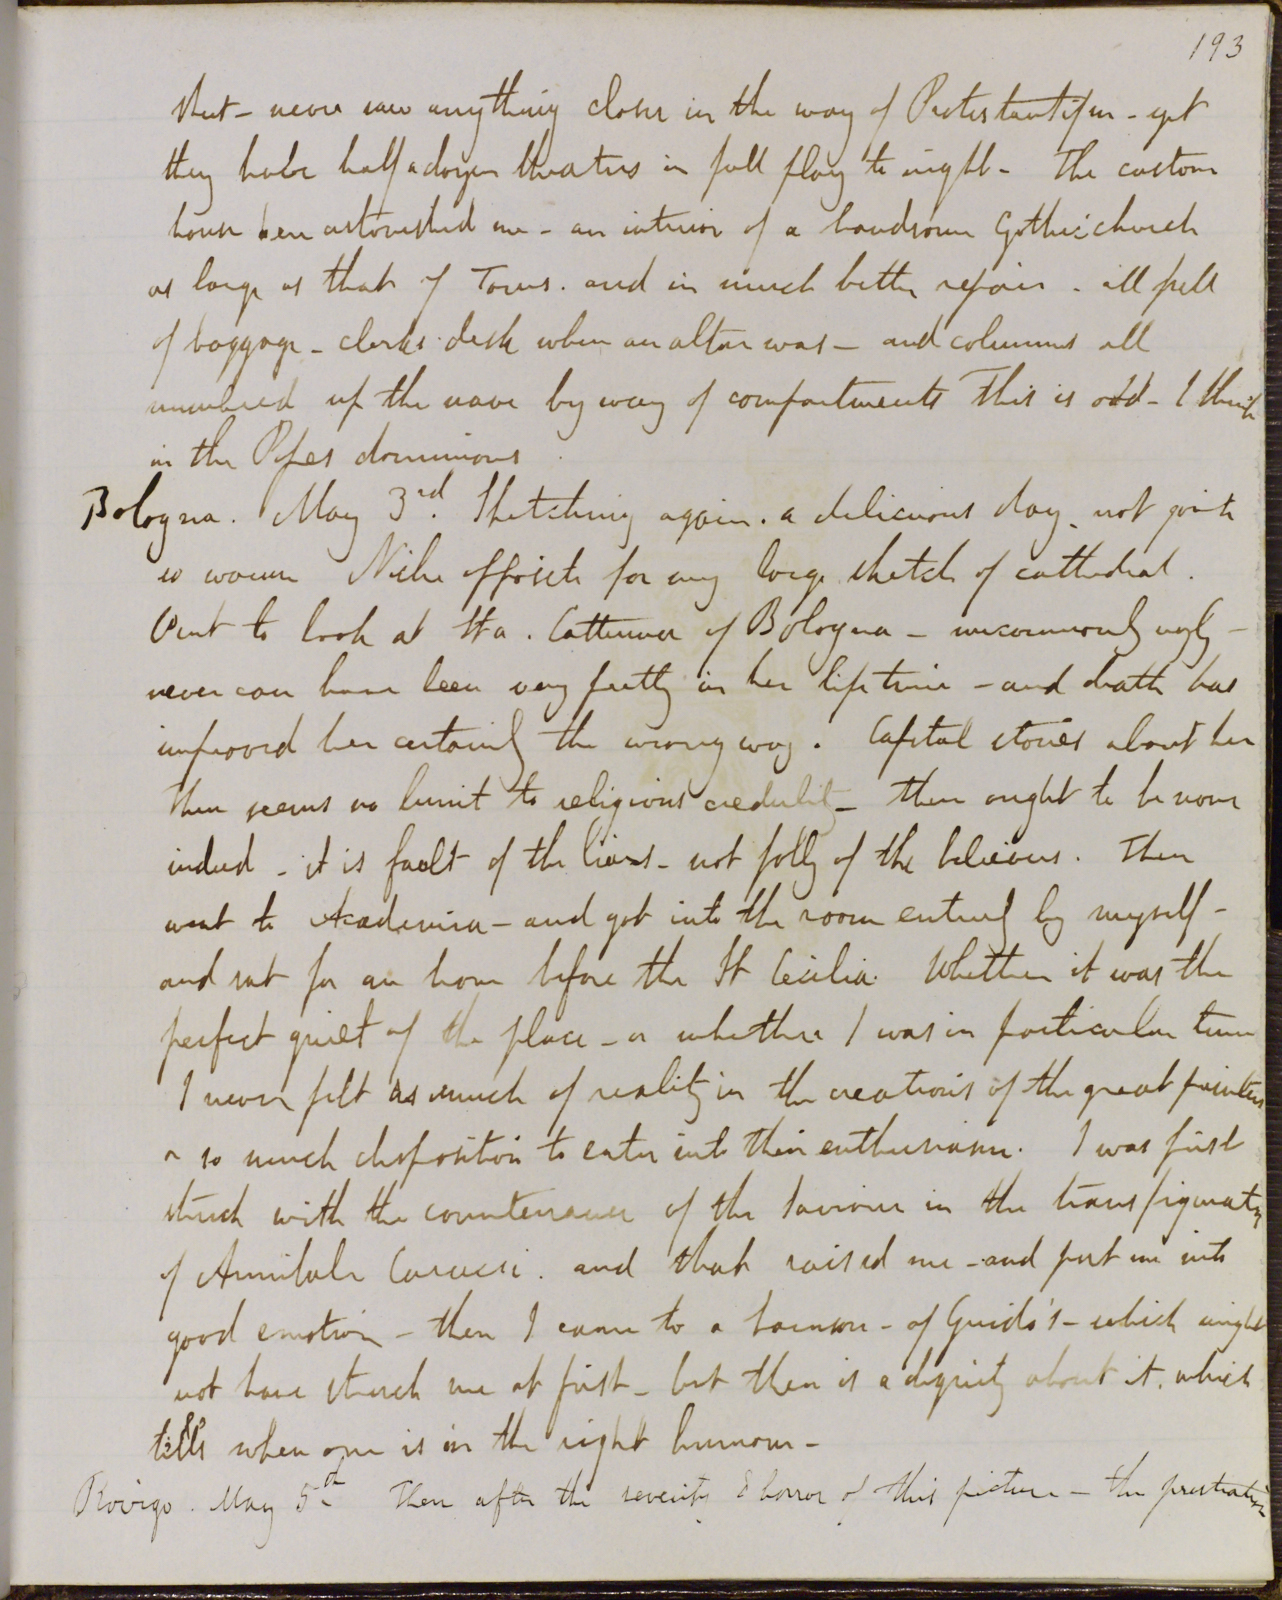 193
shut - never saw anything closer in the way of Protestantism - yet
they have half a dozen theatres in full play to night - The custom
house here astonished me - an interior of a handsome Gothic church
as large as that of Tours. and in much better repair - all full
of baggage - clerks desk where an altar was - and columns all
numbered up the nave by way of compartments This is odd - I think
in the Popes dominions
Bologna. May 3rd. Sketching again. a delicious day. not quite
so warm Niche opposite for my large sketch of cathedral.
Went to look at Sta. Catterina of Bologna - uncommonly ugly -
never can have been very pretty in her life time - and death has
improved her certainly the wrong way. Capital stories about her
there seems no limit to religious credulity - there ought to be none
indeed - it is fault of the liars - not folly of the believers. Then
went to Academia - and got into the room entirely by myself -
and sat for an hour before the St Cecilia. Whether it was the
perfect quiet of the place - or whether I was in particular tune
I never felt as much of reality in the creations of the great painters
or so much disposition to enter into their enthusiasm. I was first
struck with the countenance of the Saviour in the transfiguration
of Annibale Caracci. and that raised me - and put me into
good emotion - then I came to a Samson - of Guido's - which might
not have struck me at first - but there is a dignity about it. which
tells when one is in the right humour -
Rovigo. May 5th Then after the severity & horror of this picture - the prostration